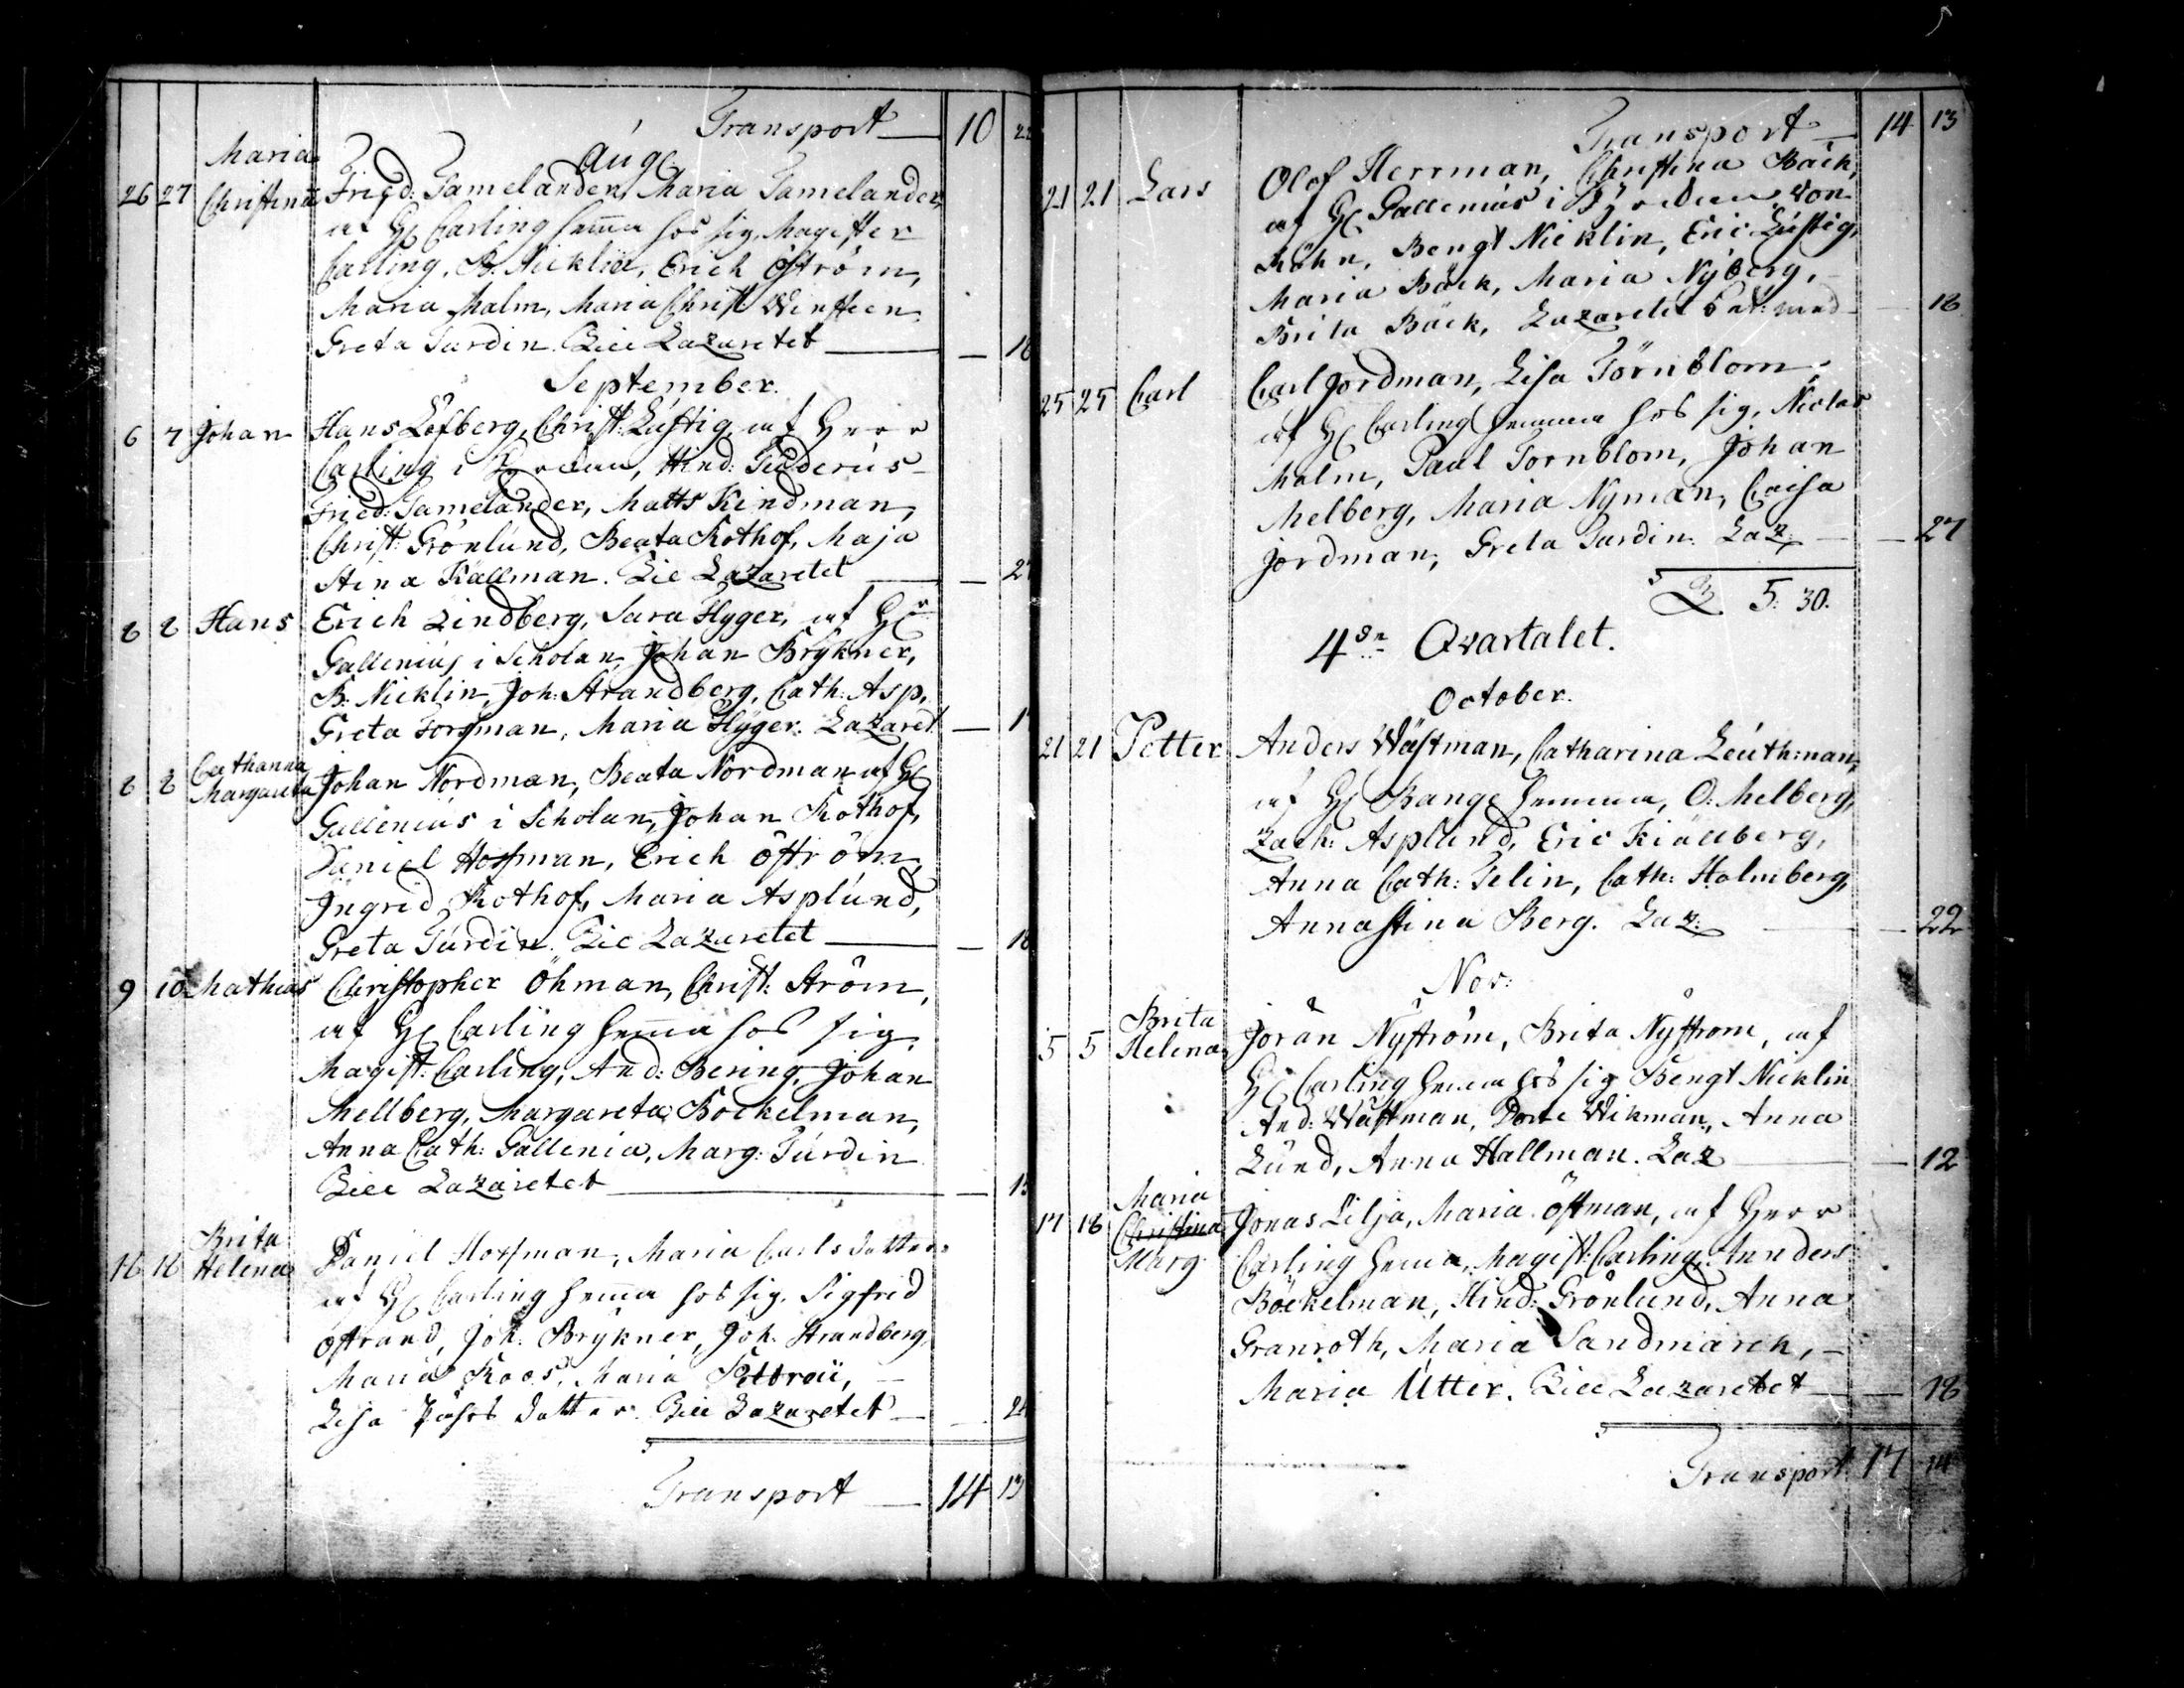 Transport — 10 22
Aug:
Maria
26 27 Christina Fried: Tamelander, Maria Tamelander,
af H: Carling hema hos sig, Magister
Carling, B. Nicklin, Erich Öström,
Maria Malm, Maria Christ: Winsteen
Greta Turdin. Till Lazaretet — — 18
September.
6 7 Johan Hans Löfberg, Christ: Lustig, af Herr
Carling i Kyrckan, Hind:
Fried: Tamelander, Matts Kindman,
Christ: Grönlund, Beata Rothof, Maja
Stina Källman. Till Lazaretet — — 27
8 8 Hans Erich Lindberg, Sara Flyger, af H:r
Gallenius i Scholan, Johan Brykner,
B: Nicklin, Joh: Strandberg, Cath: Asp,
Greta Forsman, Maria Flyger. Lazaret —
8 8 Catharina Margareta Johan Nordman, Beata Nordman af H:
Gallenius i Scholan, Johan Rothof,
Daniel Hoffman, Erich Öström,
Ingrid Rothof, Maria Asplund,
Greta Turdin. Till Lazaretet — — 18
9 10 Mathias Christopher Öhman, Christ: Ström,
af H: Carling hema hos sig,
Magist: Carling, And: Bering, Johan
Mellberg, Margareta Bockelman,
Anna Cath: Gallenia, Marg: Turdin
Till Lazaretet — —
Brita
16 16 Helena Daniel Hoffman, Maria Carlsdotter
af H: Carling hema hos sig, Sigfrid
Östrand, Joh: Brykner, Joh: Strandberg,
Maria Roos, Maria —
Lisa dotter. Till Lazaretet — — 24
Transport — 14 13
Transport — 14 13
21 21 Lars Olof Herrman, Christina Bäck,
af H: Gallenius i Kyrckan, von
Köhn, Bengt Nicklin, Eric Lustig,
Maria Bäck, Maria Nyberg, —
Brita Bäck, Lazaretet — 18
25 25 Carl Carl Jordman, Lisa Törnblom,
af H: Carling hemma hos sig, Niclas
Malm, Paul Törnblom, Johan
Melberg, Maria Nyman, Caisa
Jordman, Greta Turdin. Laz: — — 27
5: 30.
4de Qvartalet.
October.
21 21 Petter Anders Wästman, Catharina Leuthman,
af H: Bange hemma, O: Melberg,
Zach: Asplund, Eric Kiällberg,
Anna Cath: Telin, Cath: Holmberg,
Anna Stina Berg. Laz: — — 22
Nov:
Brita
5 5 Helena Jöran Nyström, Brita Nyström, af
H: Carling hema hos sig Bengt Nicklin
And: Wästman, Wikman, Anna
Lund, Anna Hallman. Laz — — 12
Maria
17 18 Christina Jonas Lilja, Maria Östman, af Herr
Marg: Carling hema, Magist: Carling, Anders
Böckelman, Hind: Grönlund, Anna
Granroth, Maria Sandmarck, —
Maria Utter. Till Lazaretet — — 18
Transport 17 14